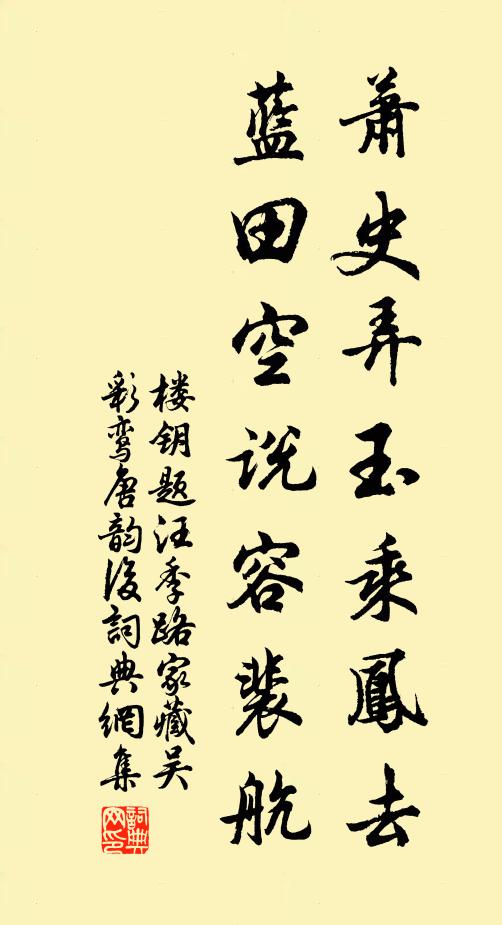 蕭史弄玉乘鳳去
藍田空説容裴航
楼钥题汪季路家藏吴
彩鸾唐韵後詞典網集
詞典网印